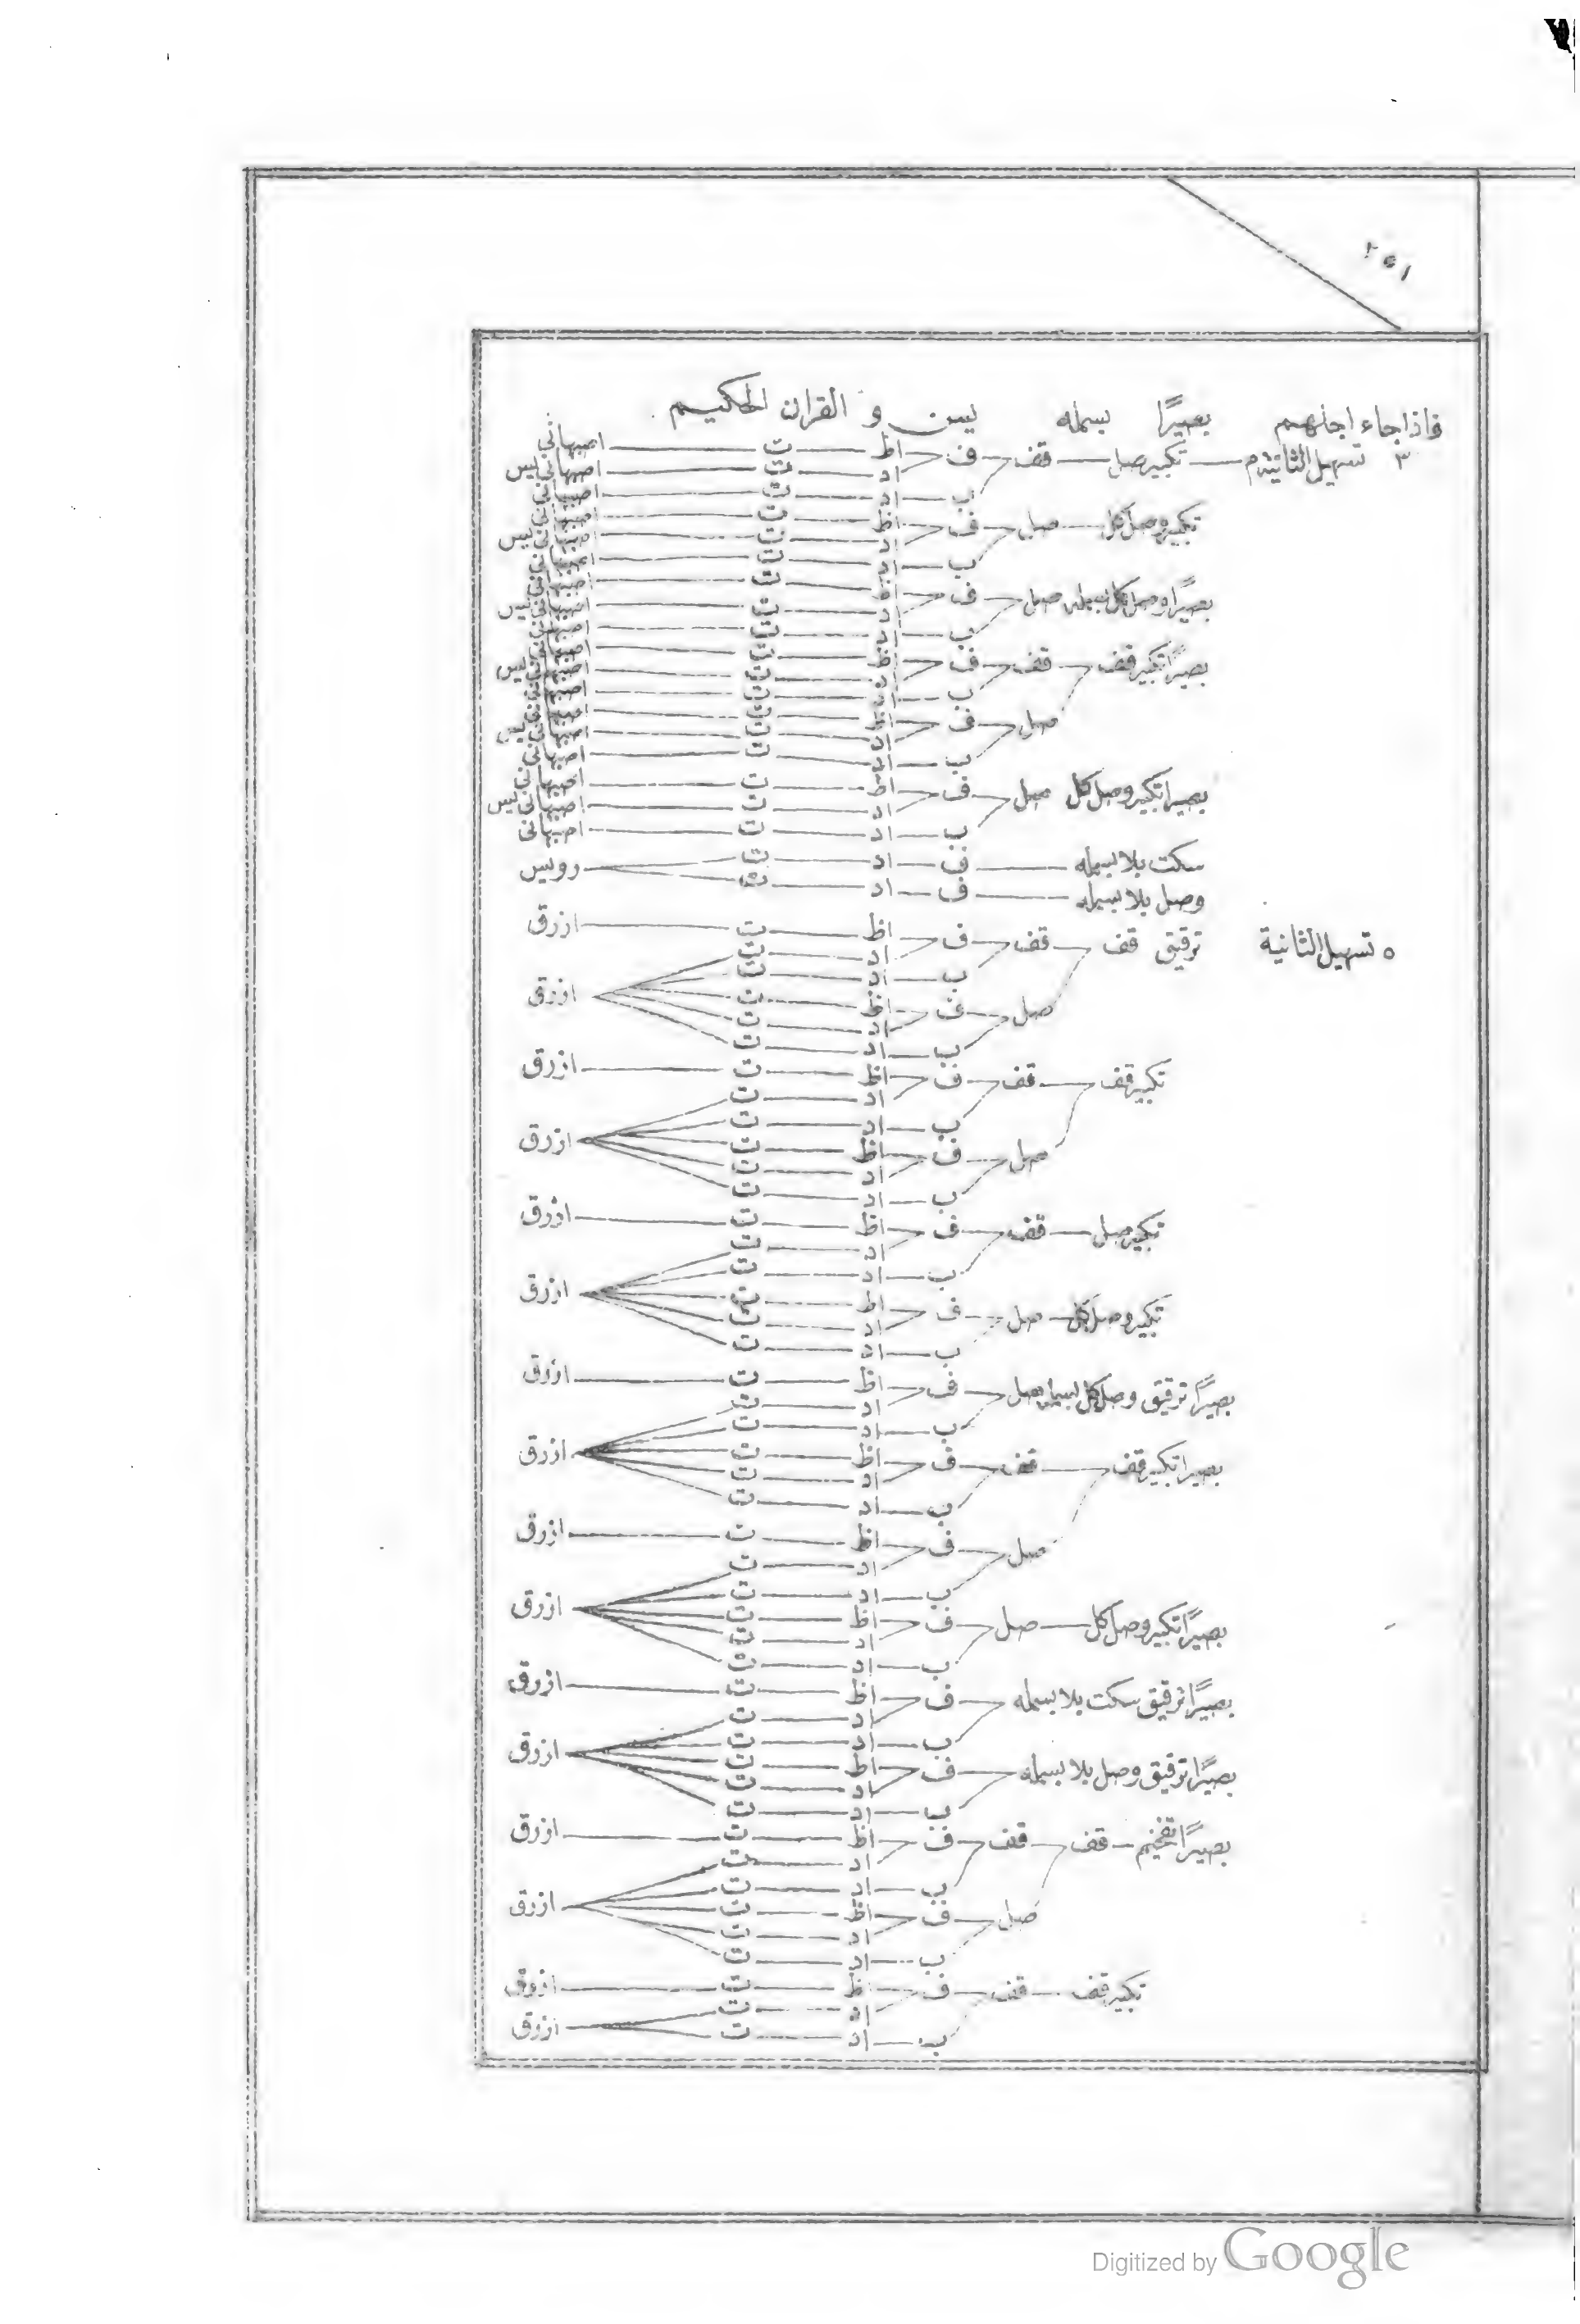 ٢٥١
فاذا جاء اجلهم بصيرًا بسمله يس و القران الحكيم
٣ تسهيل الثانية م — تكبير صل — قف ف اظ ت اصبهانى
اد ت اصبهانى يس
ب اد ت اصبهانى
تكبير وصل كل — صل ف اظ ت اصبهانى
اد ت اصبهانى يس
ب اد ت اصبهانى
بصيرًا وصل كل بسمله صل ف اظ ت اصبهانى
اد ت اصبهانى يس
ب اد ت اصبهانى
بصيرًا تكبير قف قف ف اظ ت اصبهانى
اد ت اصبهانى يس
ب اد ت اصبهانى
صل ف اظ ت اصبهانى
اد ت اصبهانى يس
ب اد ت اصبهانى
بصيرا تكبير وصل كل صل ف اظ ت اصبهانى
اد ت اصبهانى يس
ب اد ت اصبهانى
سكت بلا بسمله — ف اد ت رويس
وصل بلا بسمله — ف اد ت
٥ تسهيل الثانية ترقيق قف قف ف اظ ت ازرق
اد ت
ب اد ت
صل ف اظ ت ازرق
اد ت
ب اد ت
تكبير قف قف ف اظ ت ازرق
اد ت
ب اد ت
صل ف اظ ت ازرق
اد ت
ب اد ت
تكبير صل — قف ف اظ ت ازرق
اد ت
ب اد ت
تكبير وصل كل — صل ف اظ ت ازرق
اد ت
ب اد ت
بصيرًا ترقيق وصل كل بسمله صل ف اظ ت ازرق
اد ت
ب اد ت
بصيرا تكبير قف قف ف اظ ت ازرق
اد ت
ب اد ت
صل ف اظ ت ازرق
اد ت
ب اد ت
بصيرًا تكبير وصل كل — صل ف اظ ت ازرق
اد ت
ب اد ت
بصيرًا ترقيق سكت بلا بسمله ف اظ ت ازرق
اد ت
ب اد ت
بصيرًا ترقيق وصل بلا بسمله ف اظ ت ازرق
اد ت
ب اد ت
بصيرًا تفخيم — قف قف ف اظ ت ازرق
اد ت
ب اد ت
صل ف اظ ت ازرق
اد ت
ب اد ت
تكبير قف — قف ف اظ ت ازرق
اد ت ازرق
ب اد ت
Digitized by Google